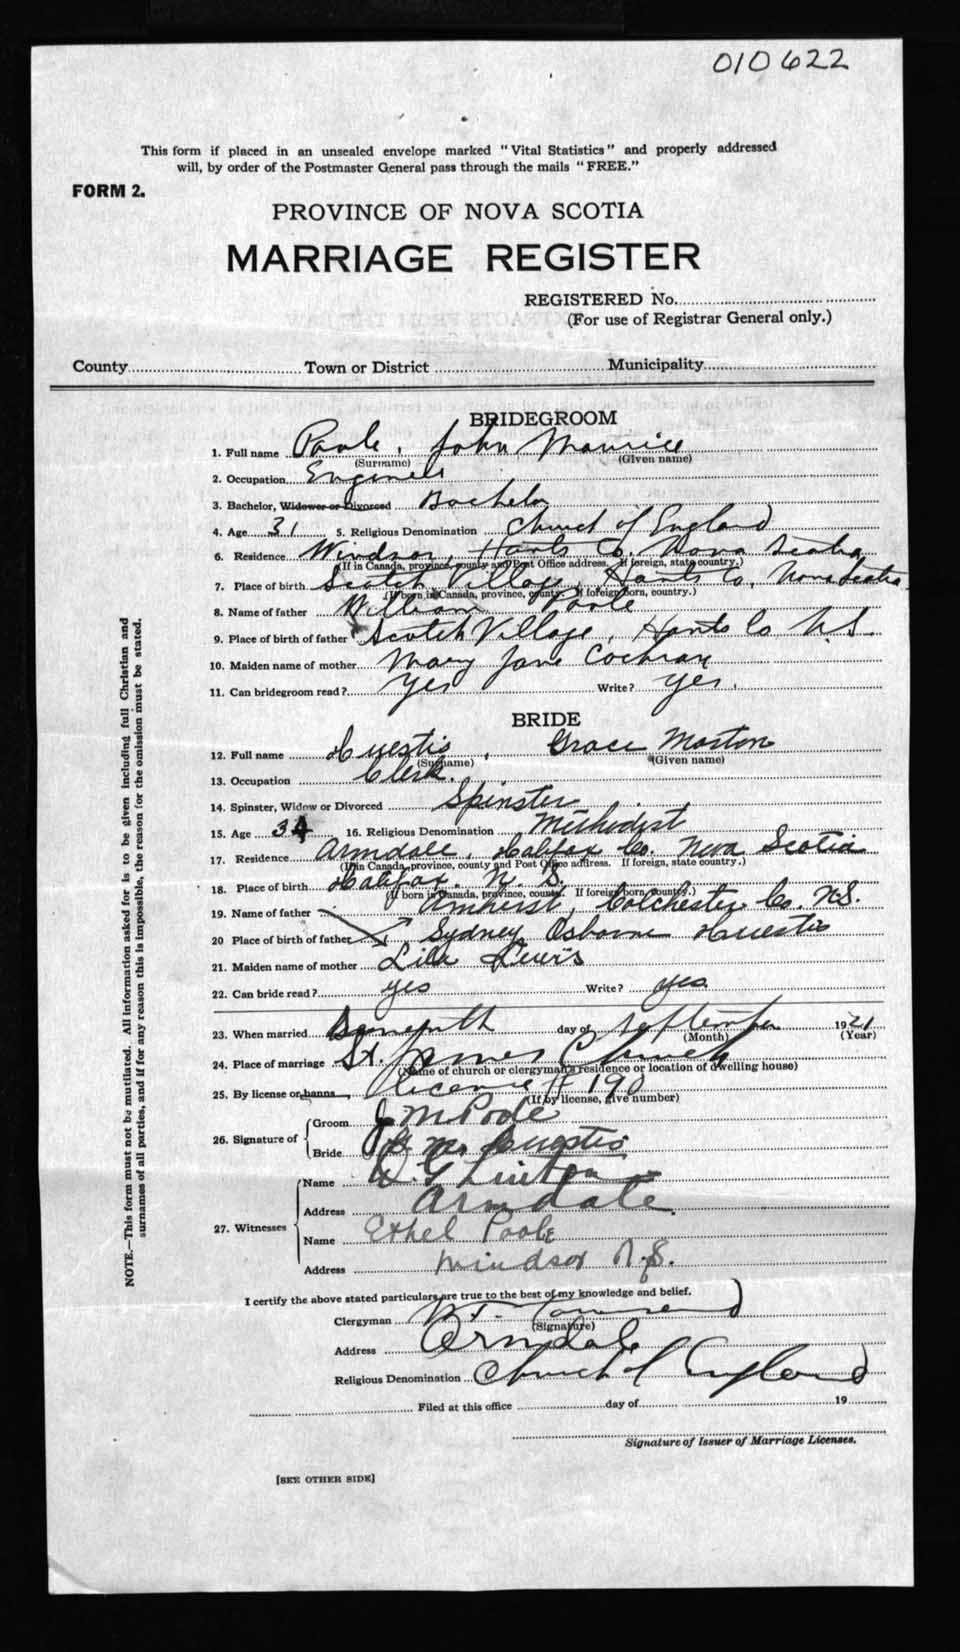 010622
This form if placed in an unsealed envelope marked "Vital Statistics" and properly addressed
will, by order of the Postmaster General pass through the mails "FREE."
FORM 2.
PROVINCE OF NOVA SCOTIA
MARRIAGE REGISTER
REGISTERED No.
(For use of Registrar General only.)
County Town or District Municipality
BRIDEGROOM
1. Full name Poole, John Maurice
(Surname) (Given name)
2. Occupation Engineer
3. Bachelor, Widower or Divorced Bachelor
4. Age 31 5. Religious Denomination Church of England
6. Residence Windsor, Hants Co. Nova Scotia
(If in Canada, province, county and Post Office address. If foreign, state country.)
7. Place of birth Scotch Village, Hants Co, Nova Scotia
(If born in Canada, province, county. If foreign born, country.)
8. Name of father William Poole
9. Place of birth of father Scotch Village, Hants Co N.S.
10. Maiden name of mother Mary Jane Cochran
11. Can bridegroom read? Yes Write? yes.
BRIDE
12. Full name Huestis, Grace Morton
(Surname) (Given name)
13. Occupation Clerk.
14. Spinster, Widow or Divorced Spinster
15. Age 34 16. Religious Denomination Methodist
17. Residence Armdale, Halifax Co. Nova Scotia
(If in Canada, province, county and Post Office address. If foreign, state country.)
18. Place of birth Halifax. N. S.
(If born in Canada, province, county. If foreign born, country.)
19. Name of father Amherst, Colchester Co. N.S.
20 Place of birth of father Sydney Osborne Huestis
21. Maiden name of mother Lila Lewis
22. Can bride read? yes Write? yes.
23. When married day of September 1921
(Month) (Year)
24. Place of marriage St. James Church
(Name of church or clergyman's residence or location of dwelling house)
25. By license or banns license # 190
(If by license, give number)
26. Signature of Groom J M Poole
Bride G. M. Huestis
27. Witnesses Name Linton
Address Armdale.
Name Ethel Poole
Address Windsor N.S.
I certify the above stated particulars are true to the best of my knowledge and belief.
Clergyman Townsend
(Signature)
Address Armdale
Religious Denomination Church of England
Filed at this office day of 19
Signature of Issuer of Marriage Licenses.
[SEE OTHER SIDE]
NOTE.—This form must not be mutilated. All information asked for is to be given including full Christian and
surnames of all parties, and if for any reason this is impossible, the reason for the omission must be stated.